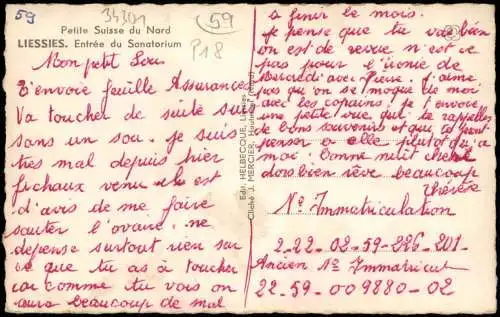 59
34301
59
P18
Petite Suisse du Nord
LIESSIES. Entrée du Sanatorium
Mon petit Lou.
T'envoie feuille Assurance
Va toucher de suite suis
sans un sou. je suis
tres mal depuis hier
fichaux venu elle est
d'avis de me faire
sauter l'ovaire. ne
depense surtout rien sur
ce que tu as à toucher
car comme tu vois on
aura beaucoup de mal
Edit. HELBECQUE, Liessies
Cliché J. MERCIER, Hautmont (Nord)
a finir le mois.
Je pense que tu vas bien
on est de revue n'est ce
pas pour l'
Mercredi avec Pierre. J'aime
pas qu'on se moque de moi
avec les copains! je t'envoie
une petite vue qui te rappelles
de bons souvenirs et que ça peut
penser à elle plutot qu'à
moi! Bonne nuit cheri
dors bien rêve beaucoup
Thérèse
No Immatriculation
2-22-02-59-226-201-
Ancien No Immatricul
22-59-009880-02